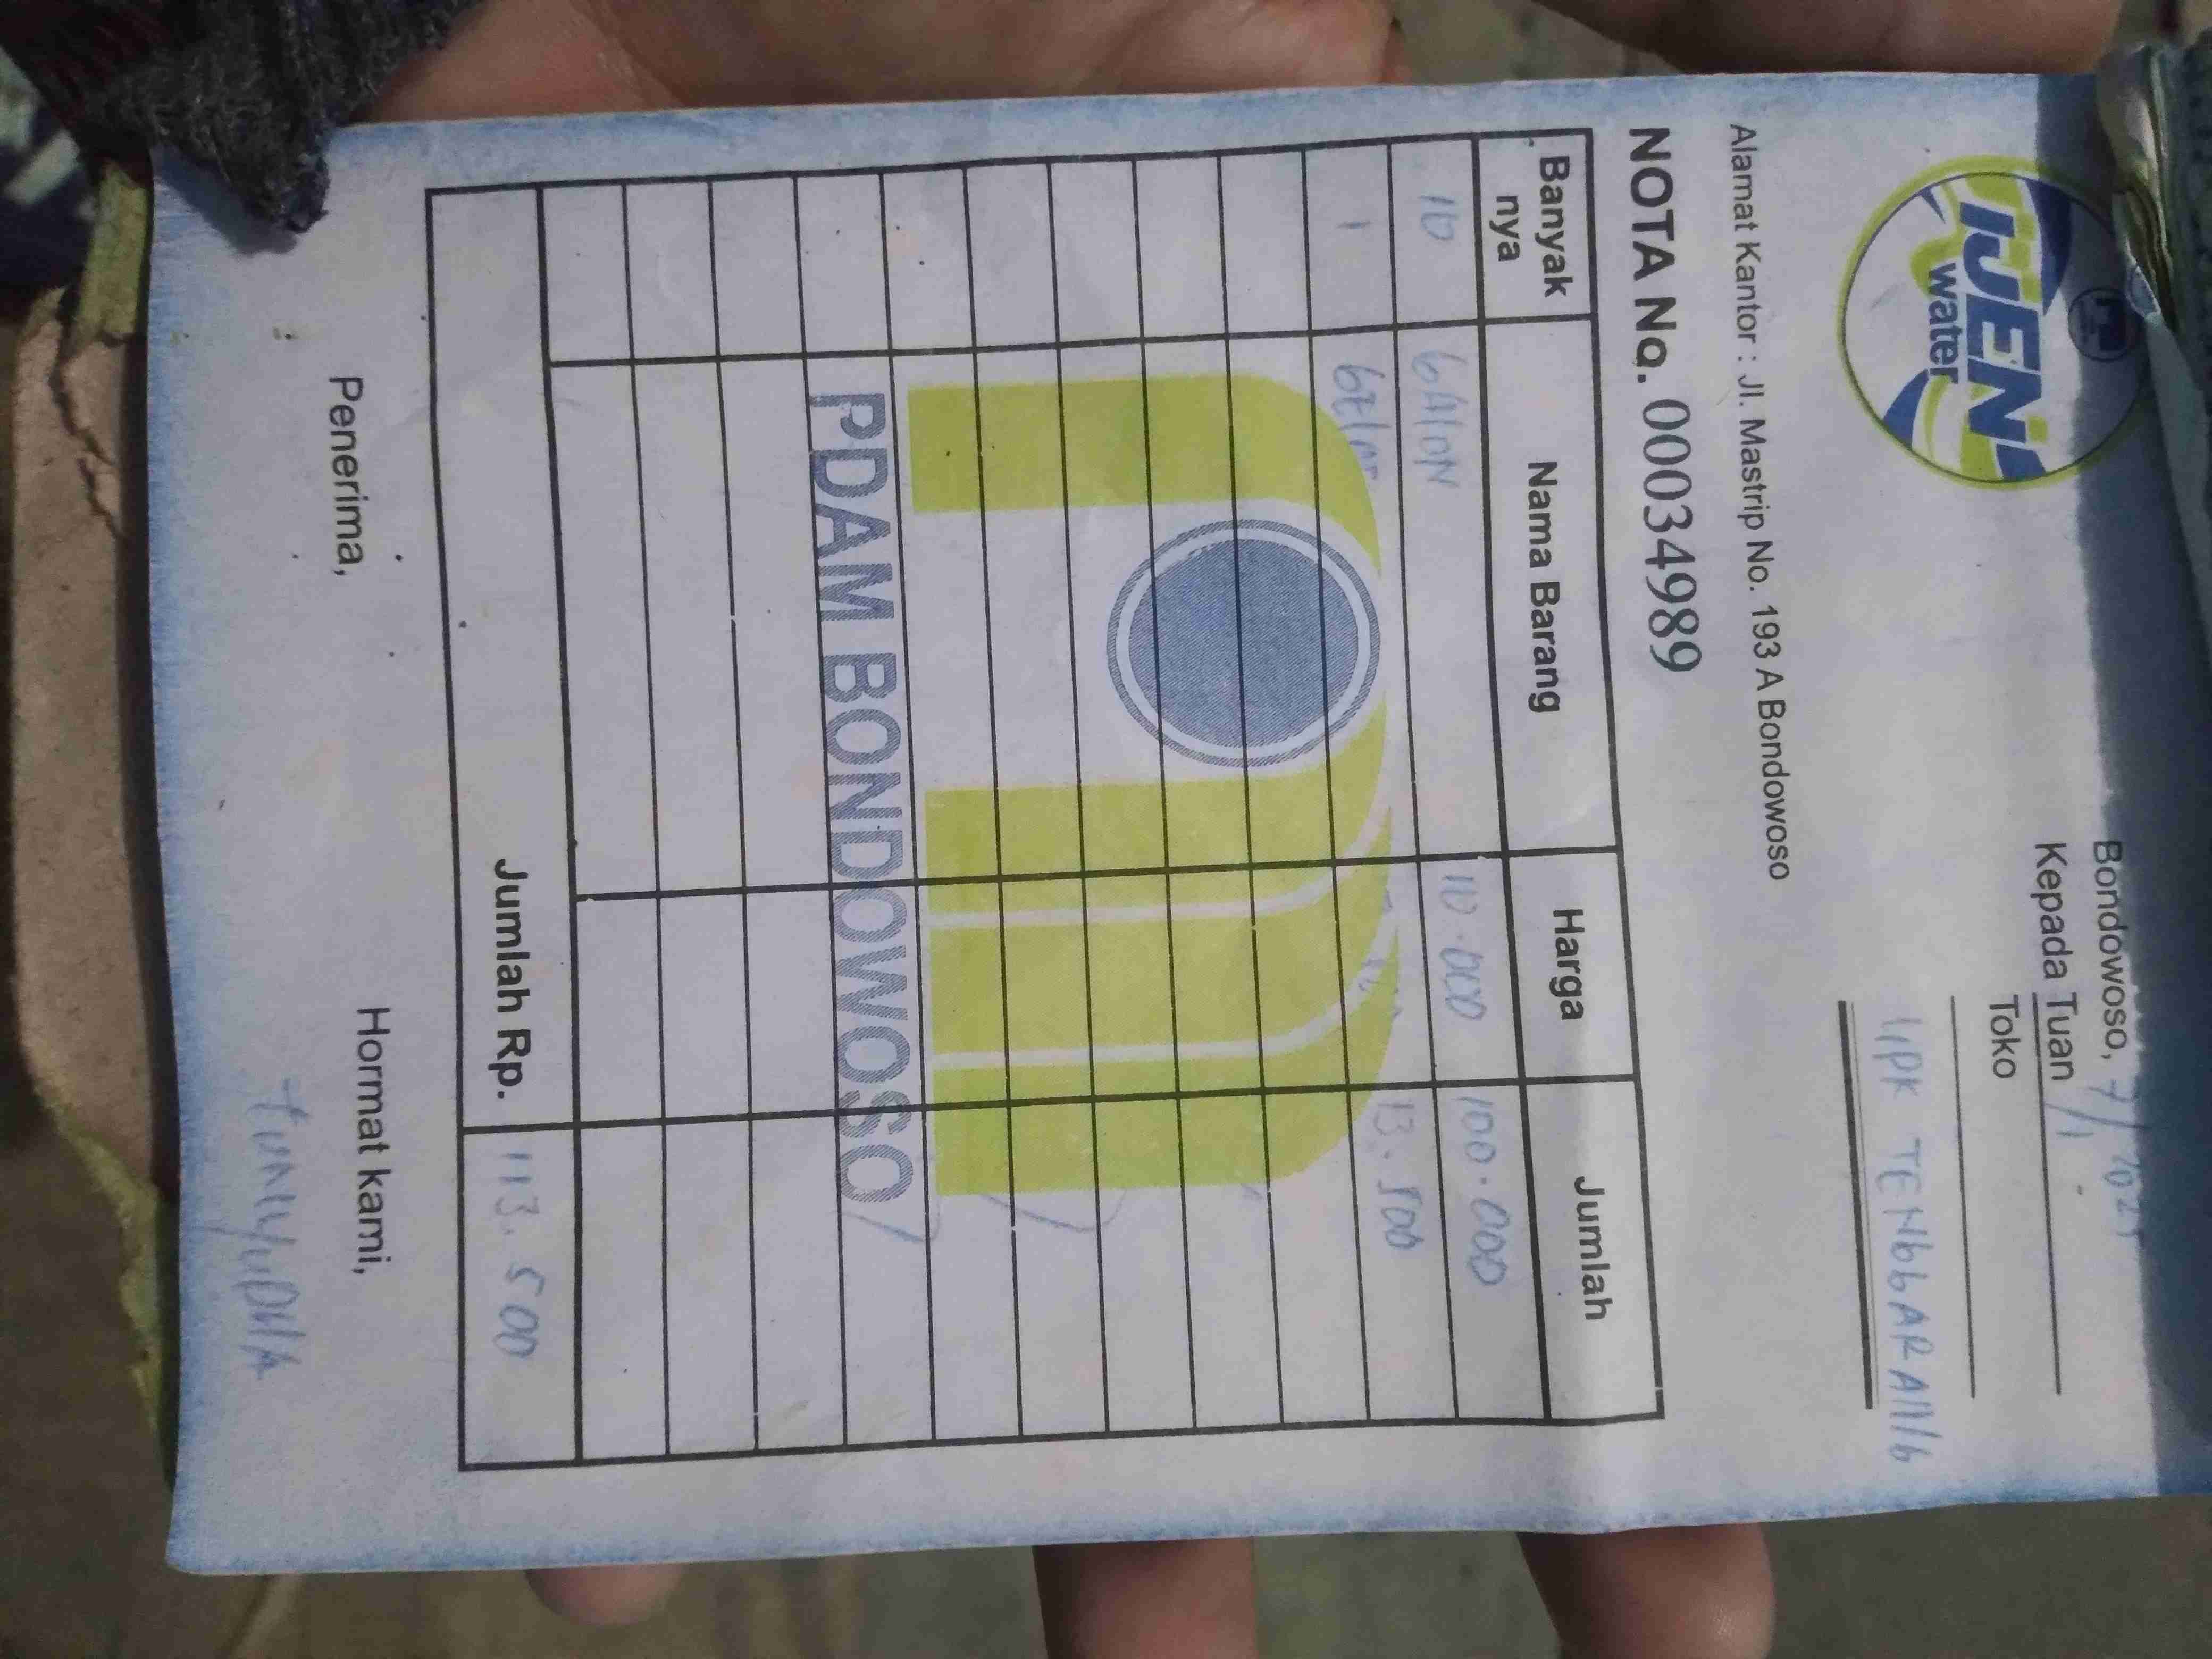 IJEN
water
Bondowoso, 7/1 2025
Kepada Tuan
Toko
UPK TENGGARANG
Alamat Kantor : Jl. Mastrip No. 193 A Bondowoso
NOTA No. 00034989
Banyak nya Nama Barang Harga Jumlah
10 GALON 10.000 100.000
1 GELAS 13.500
PDAM BONDOWOSO
Jumlah Rp. 113.500
Penerima, Hormat kami,